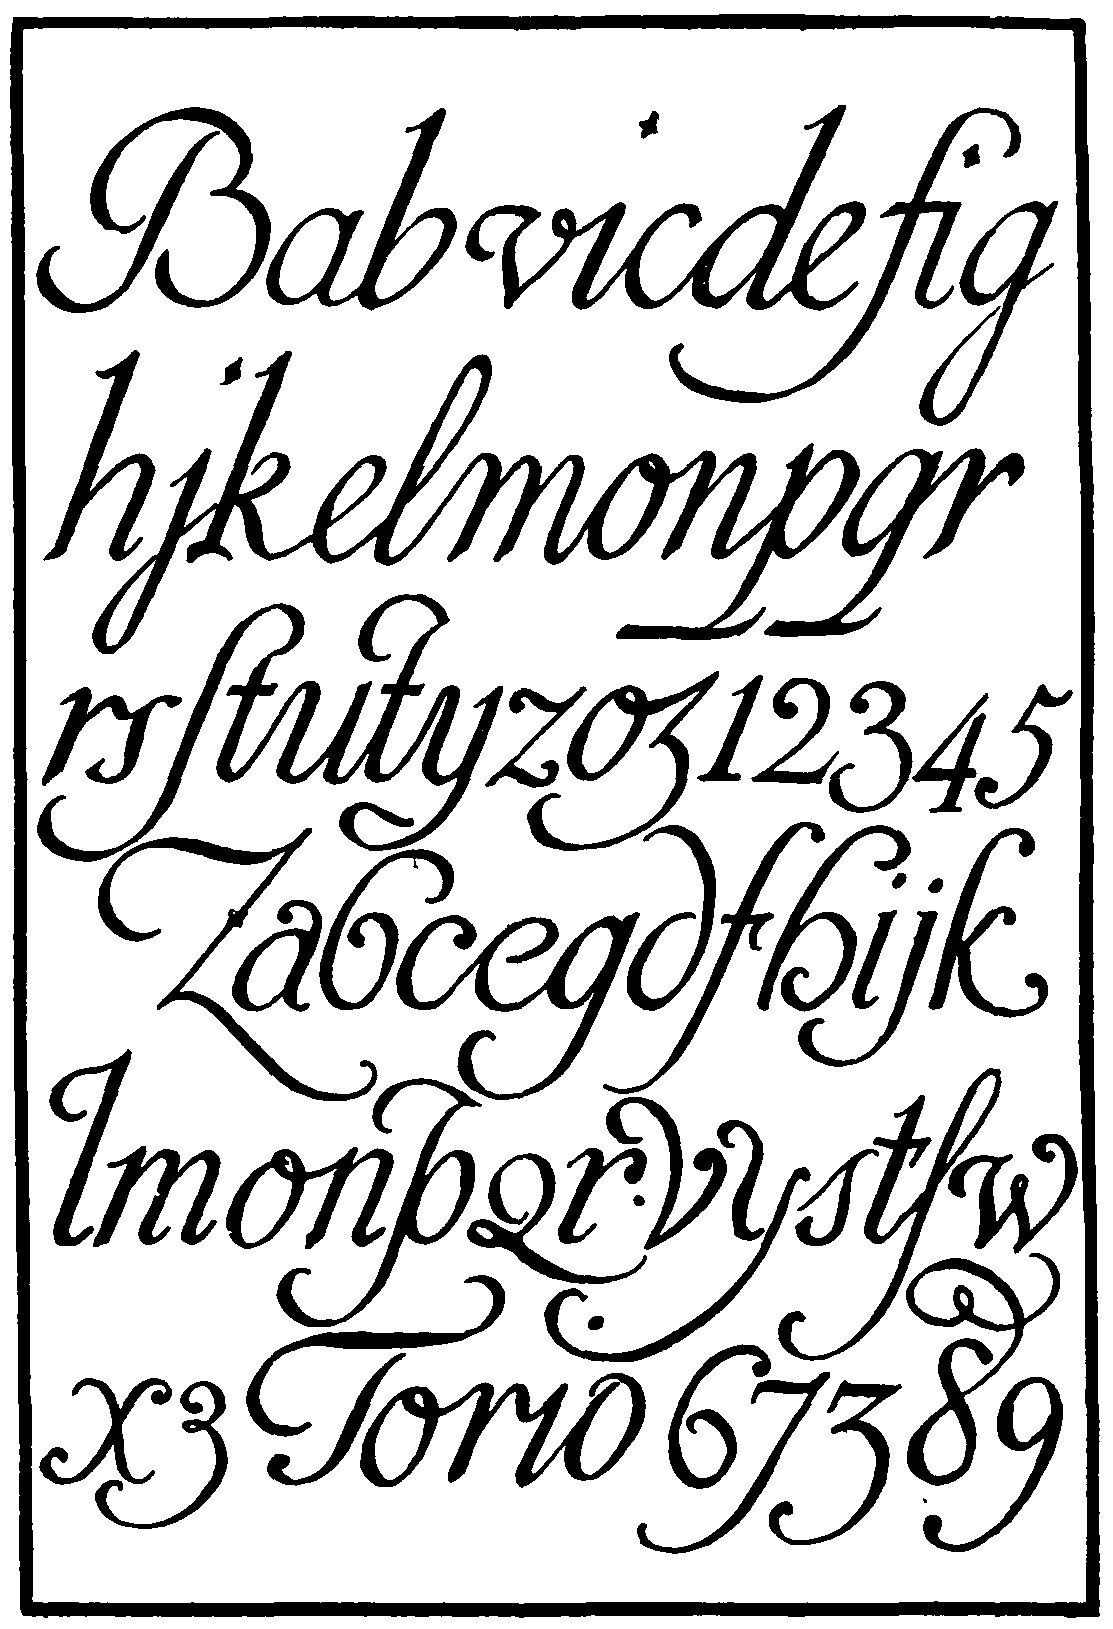 Babvicdefig
hjkelmonpgr
rsſtutyzoz12345
Zabcegdfhijk
lmonpqrvystſw
xz Torio 67389